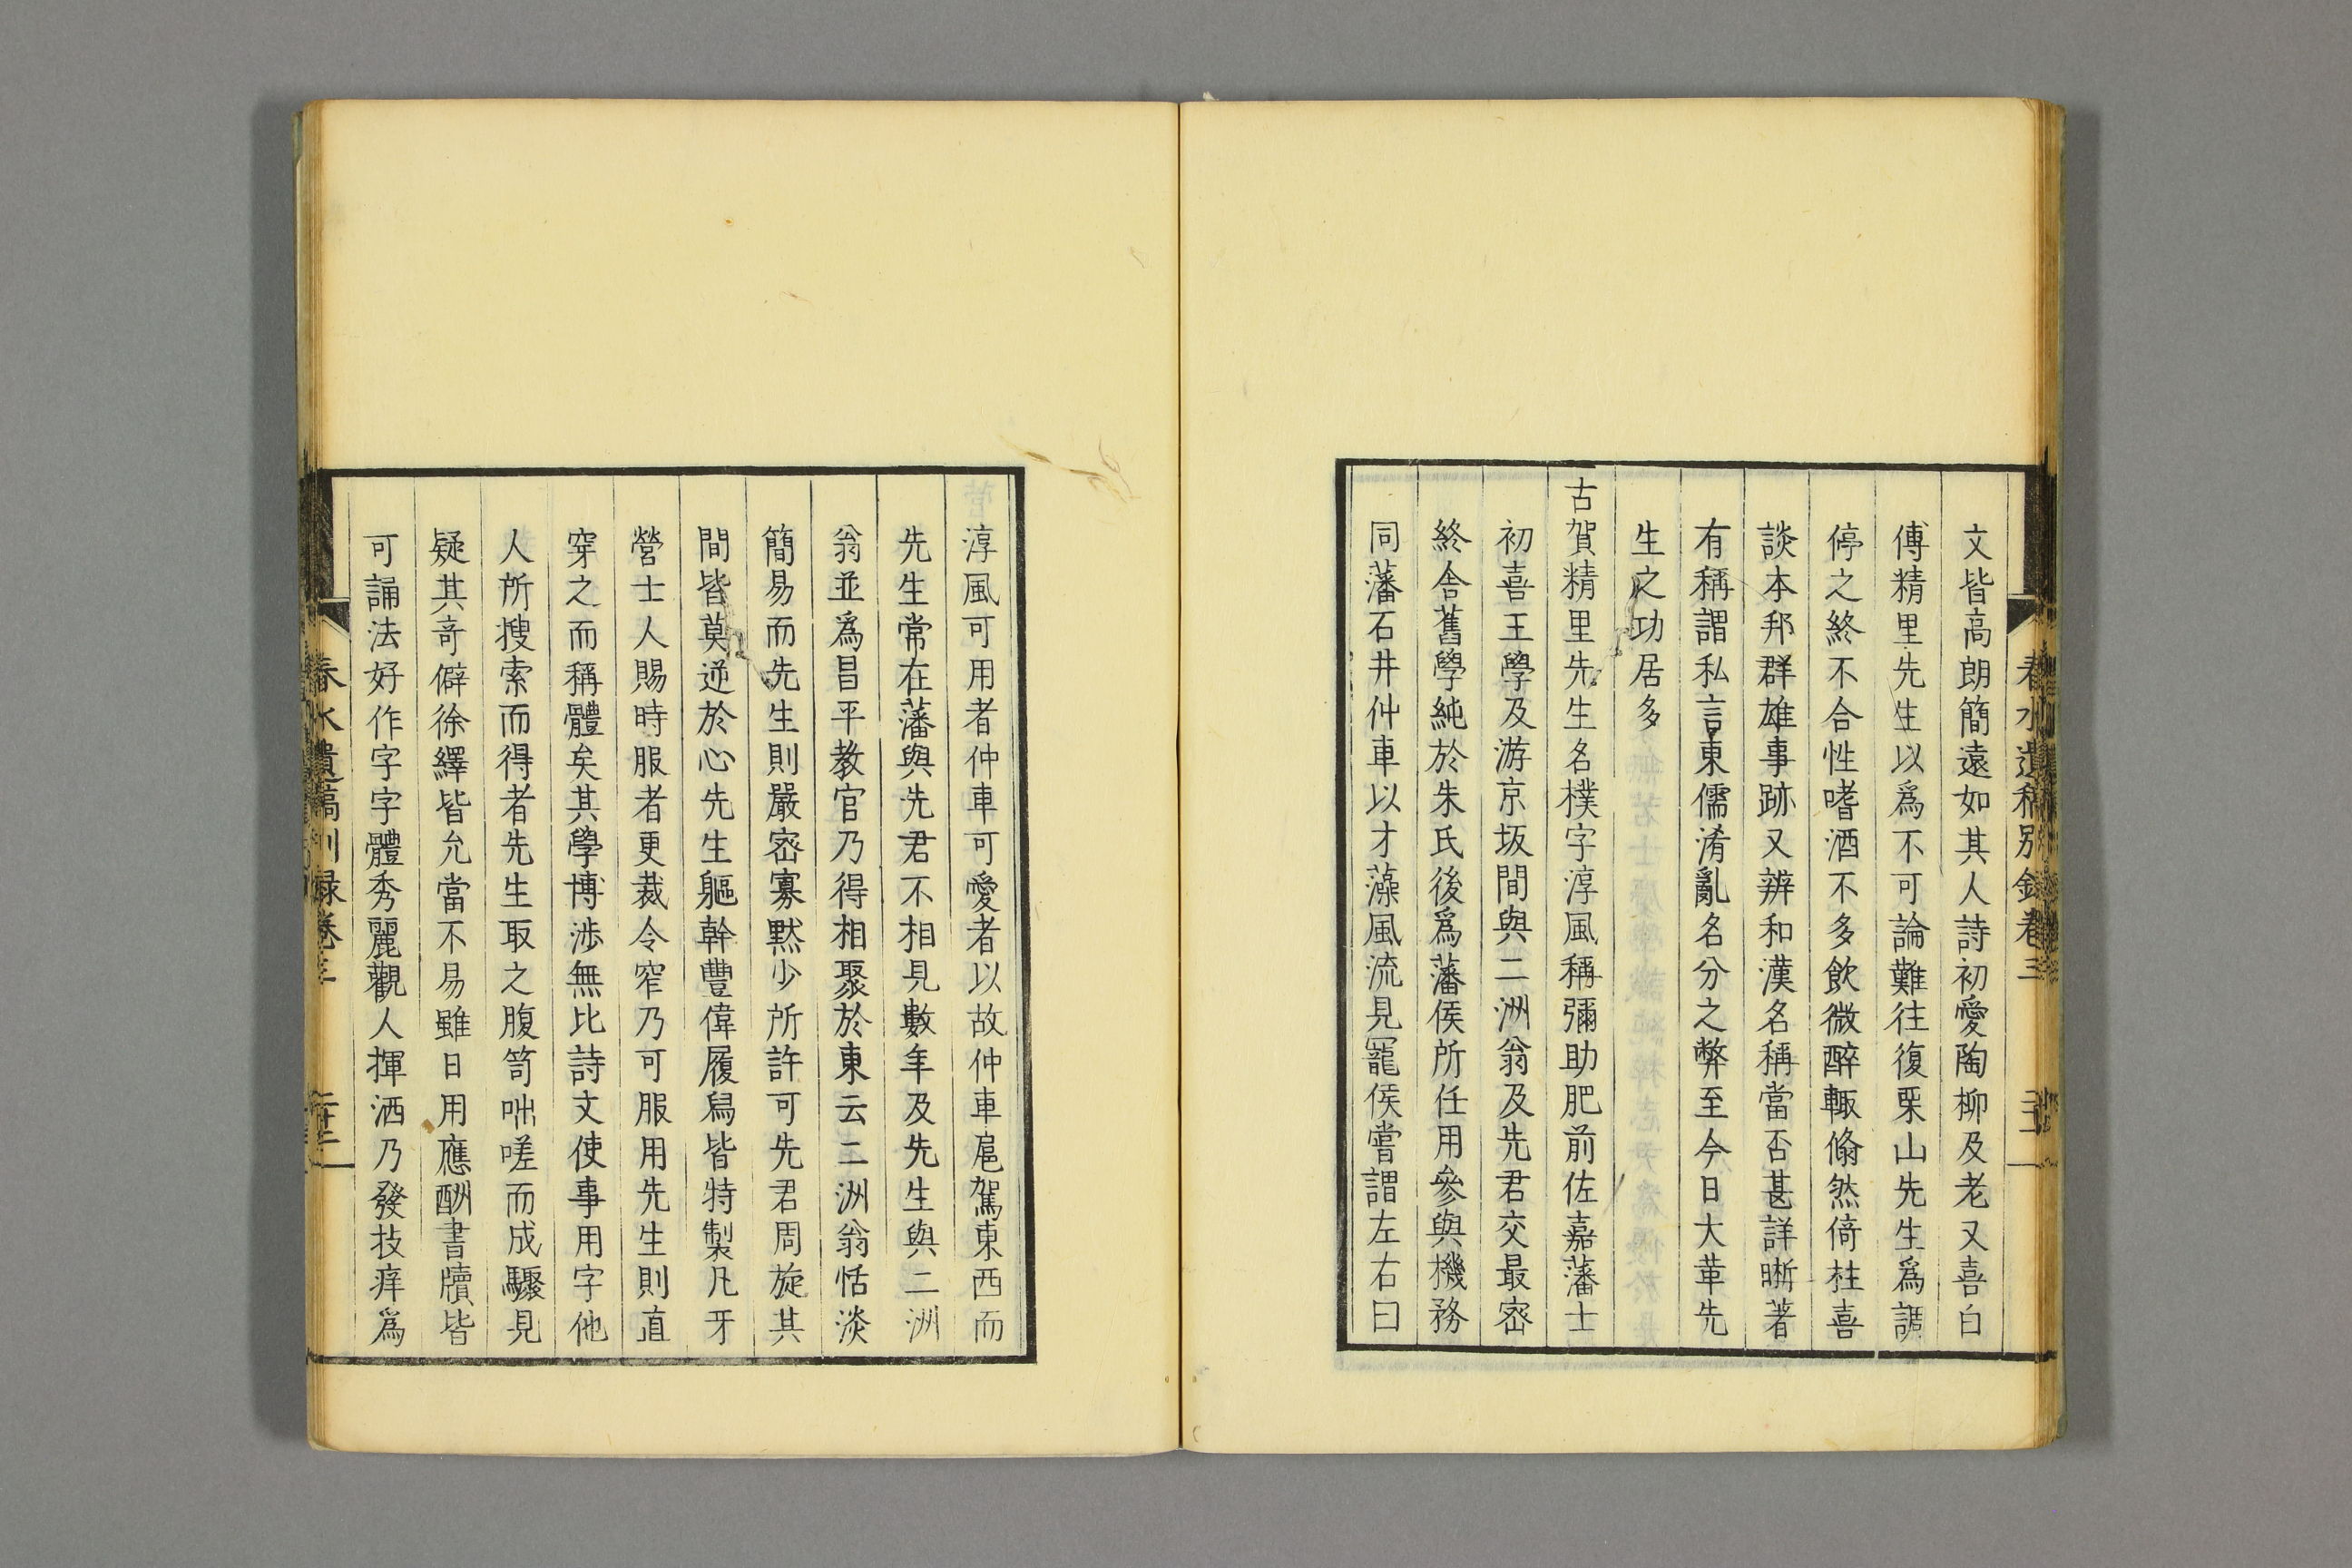 春水遺稿別錄卷三
文皆高朗簡遠如其人詩初愛陶柳及老又喜白
傅精里先生以爲不可論難往復栗山先生爲調
停之終不合性嗜酒不多飲微醉輙翛然倚柱喜
談本邦群雄事跡又辨和漢名稱當否甚詳晰著
有稱謂私言東儒淆亂名分之弊至今日大革先
生之功居多
古賀精里先生名樸字淳風稱彌助肥前佐嘉藩士
初喜王學及游京坂間與二洲翁及先君交最密
終舍舊學純於朱氏後爲藩侯所任用參與機務
同藩石井仲車以才藻風流見寵侯嘗謂左右曰
淳風可用者仲車可愛者以故仲車扈駕東西而
先生常在藩與先君不相見數年及先生與二洲
翁並爲昌平教官乃得相聚於東云二洲翁恬淡
簡易而先生則嚴密寡默少所許可先君周旋其
間皆莫逆於心先生軀幹豐偉履舄皆特製凡牙
營士人賜時服者更裁令窄乃可服用先生則直
穿之而稱體矣其學博涉無比詩文使事用字他
人所搜索而得者先生取之腹笥咄嗟而成驟見
疑其奇僻徐繹皆允當不易雖日用應酬書牘皆
可誦法好作字字體秀麗觀人揮洒乃發技痒爲
春水遺稿別録卷三